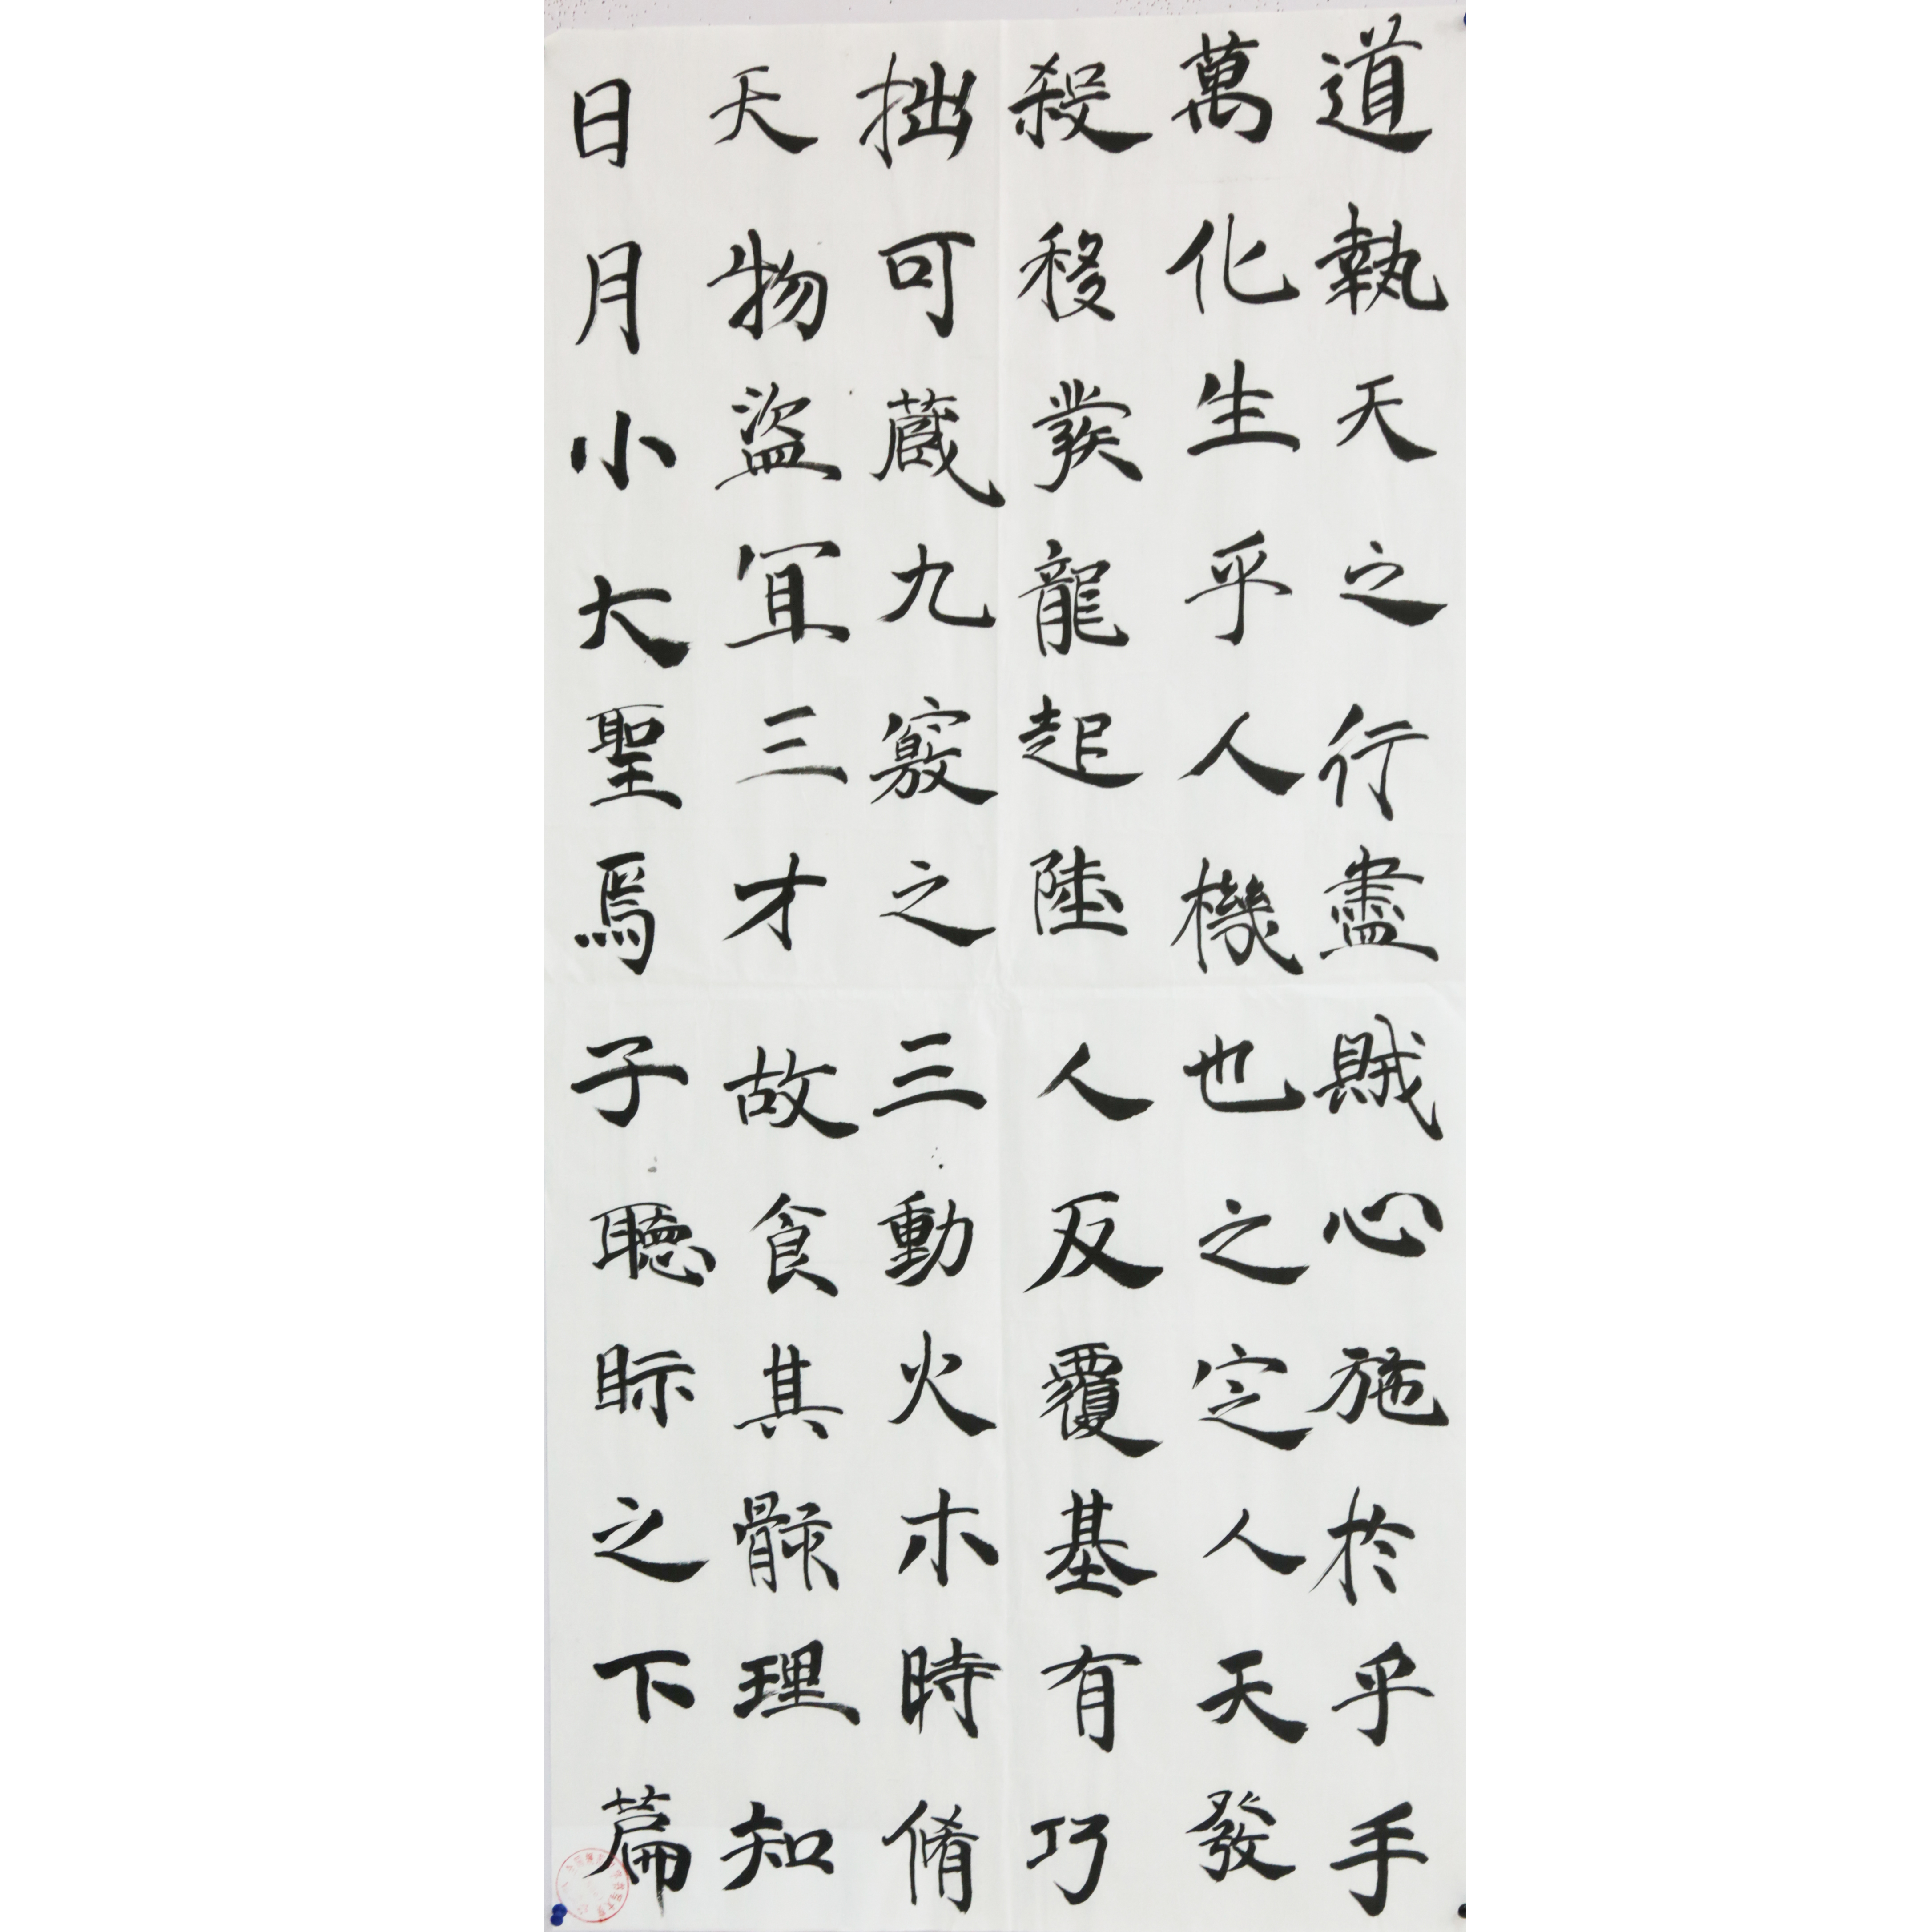 道執天之行盡賊心施於乎手
萬化生乎人機也之定人天發
殺移發龍起陸人反覆基有巧
拙可蔵九竅之三動火木時脩
天物盜宜三才故食其骸理知
日月小大聖焉子聽眎之下篇